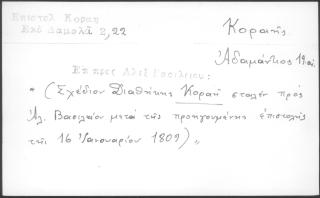 Επιστολ Κοραη
Εκδ Δαμαλᾶ 2,22
Κοραῆς
Ἀδαμάντιος
Επ προς Αλεξ Βασιλειου:
" (Σχέδιον Διαθήκης Κοραῆ σταλὲν πρὸς
Ἀλ. Βασιλείου μετὰ τῆς προηγουμένης ἐπιστολῆς
τῆς 16 Ἰανουαρίου 1809) "